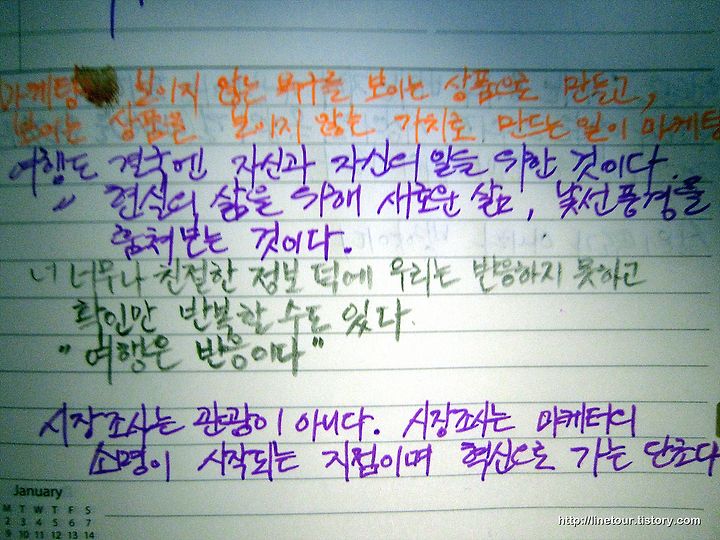 마케팅 보이지 않는 욕구를 보이는 상품으로 만들고,
보이는 상품을 보이지 않는 가치로 만드는 일이 마케팅
여행도 결국엔 자신과 자신의 일을 위한 것이다.
〃 현실의 삶을 위해 새로운 삶, 낯선풍경을
훔쳐보는 것이다.
너무나 친절한 정보 덕에 우리는 반응하지 못하고
확인만 반복할 수도 있다.
"여행은 반응이다"
시장조사는 관광이 아니다. 시장조사는 마케터의
소명이 시작되는 지점이며 혁신으로 가는 단초다
January
M T W T F S
2 3 4 5 6 7
9 10 11 12 13 14
http://linetour.tistory.com